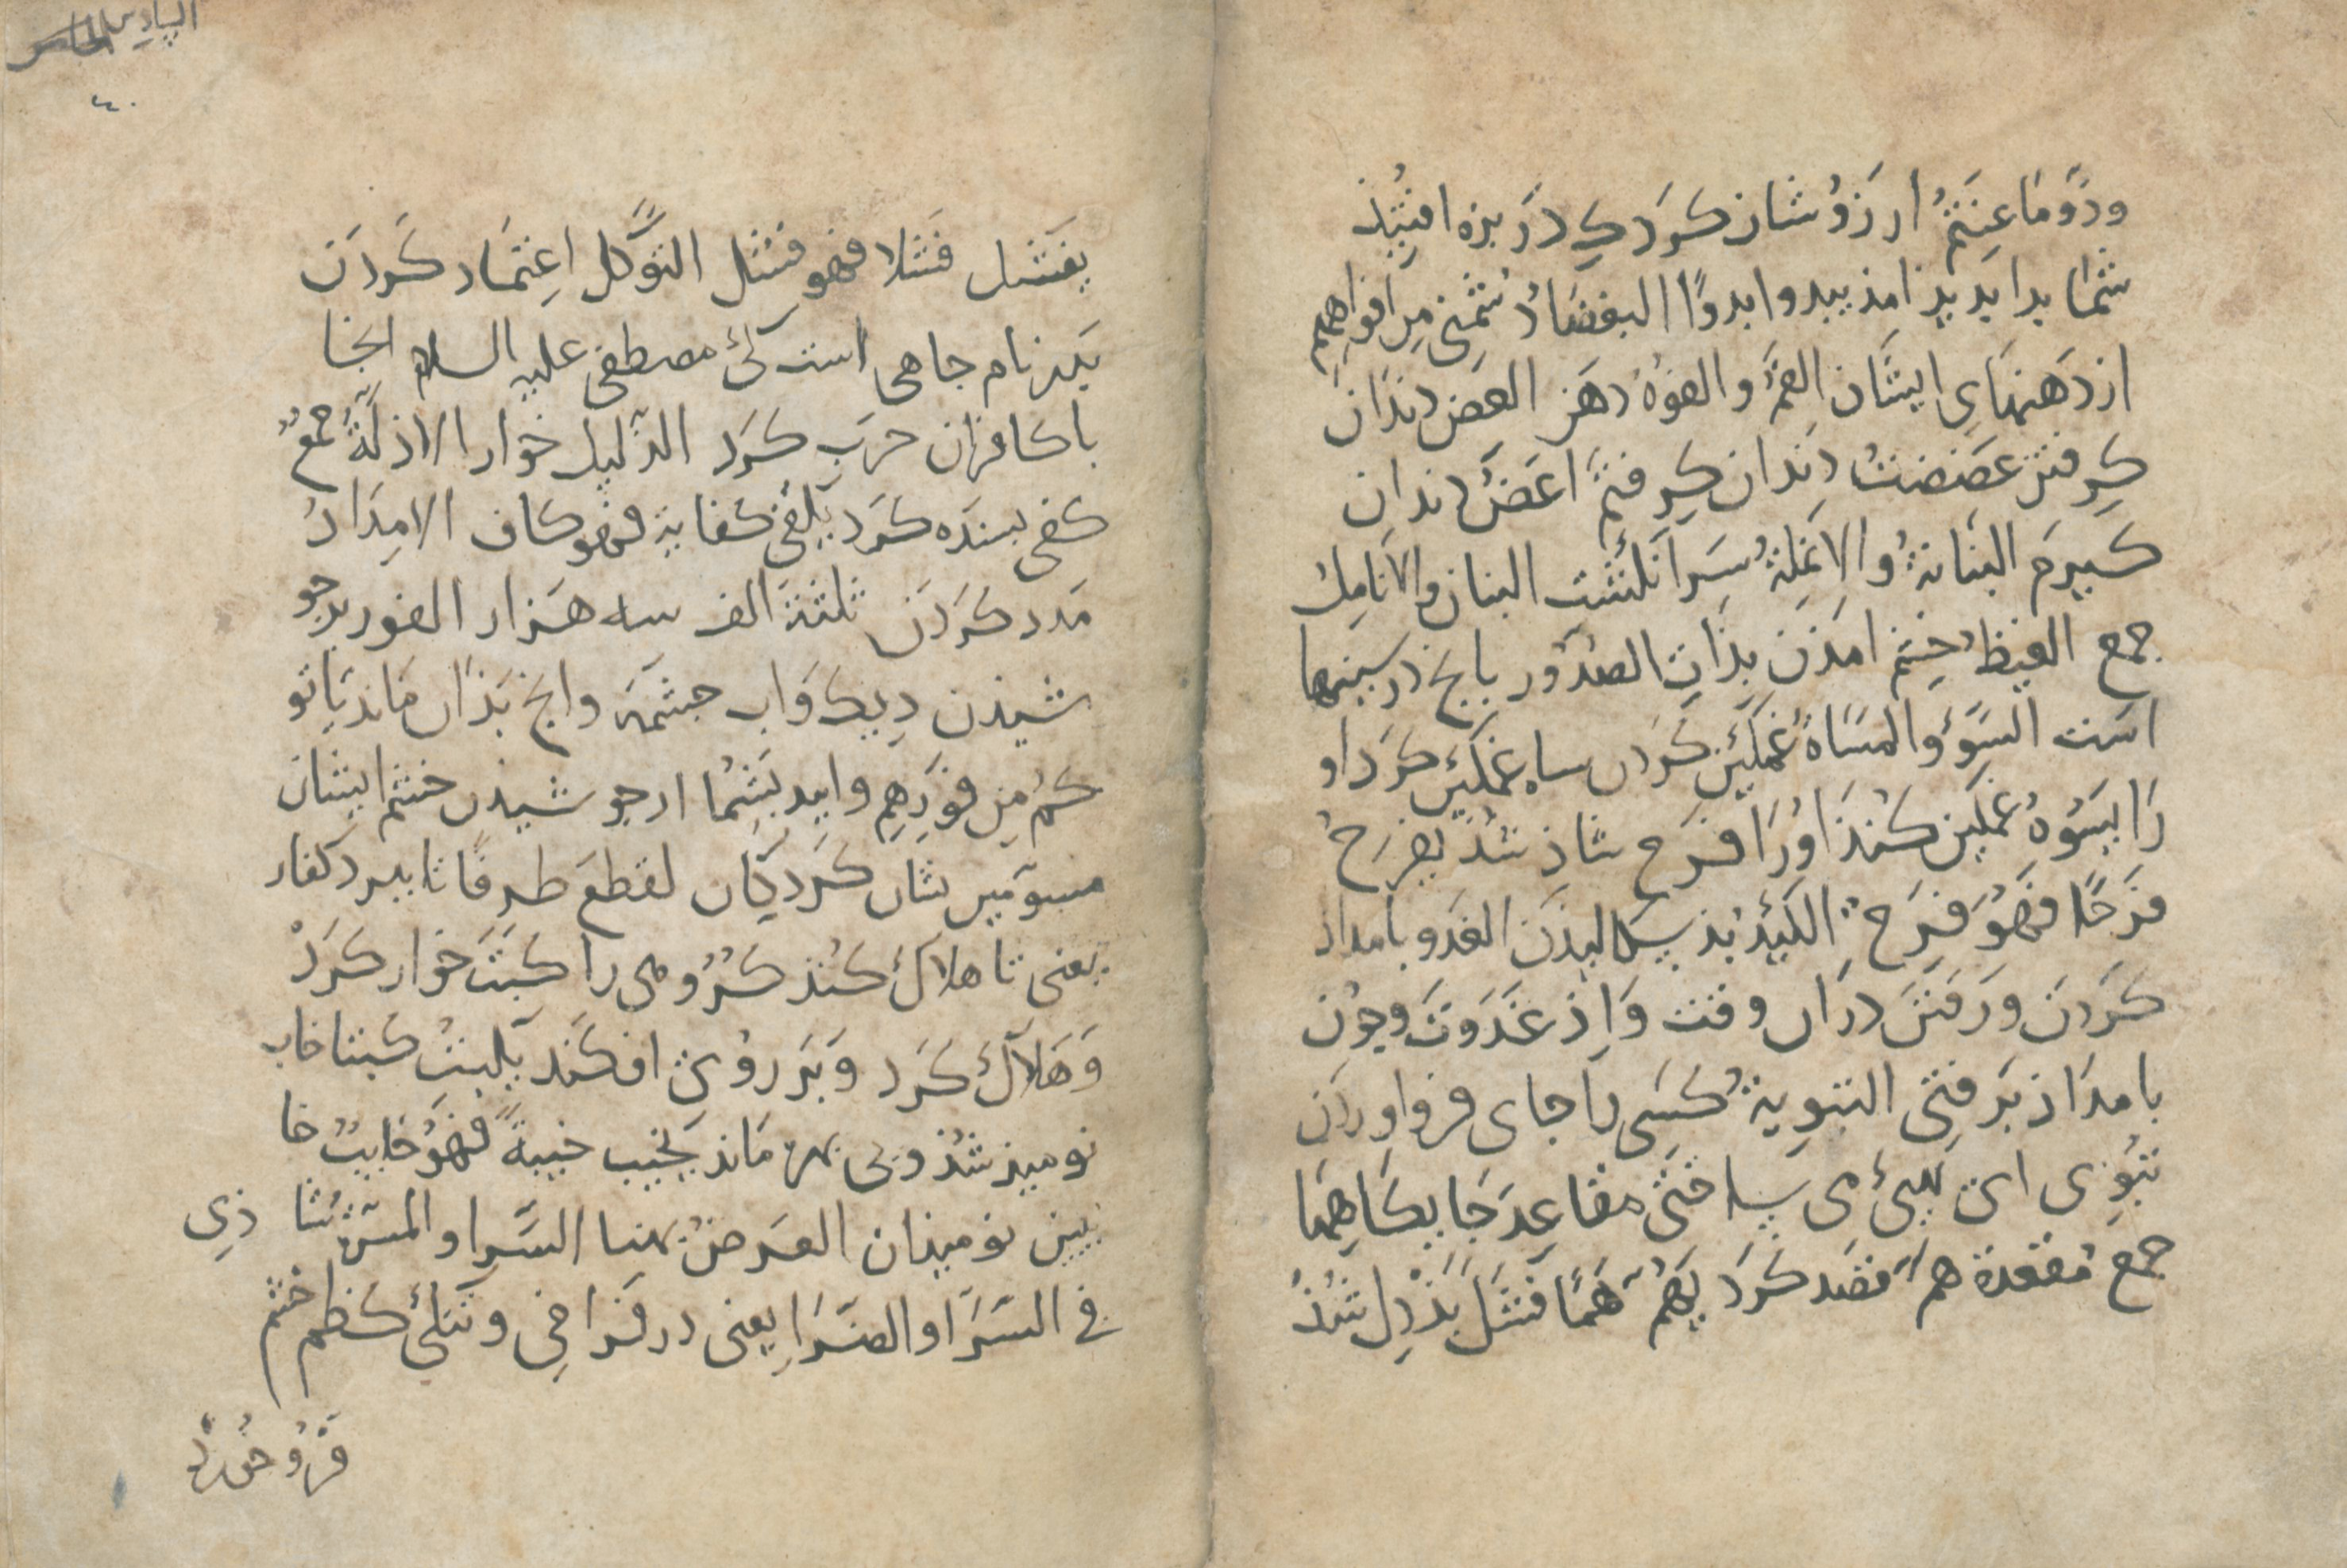 ودّوا مَا عَنِتُّمْ ارزوشان کرد کی در بزه افتیذ
شما بدا یدید امذ یبدوا بدوًّا البغضاءُ دُشمنی مِن افواهِهِم
از دهنهای ایشان الفمُ والفوهُ دهن العض دندان
کرفتن عضضتُ دندان کرفتم اعَضُّ دندان
کیرم البنانةُ والانملةُ سر انکشت البنان والانامل
جمع الغیظُ خشم امذن بذات الصدور بانچ در سینها
است السَوءُ والمساةُ غمکین کردن ساه غمکین کرد او
را یسوهُ غمکین کنذ اورا فرح شاذ شد یفرحُ
فرحًا فهو فرحٌ الکیدُ بذ سکالیدن الغدو بامداذ
کردن ورفتن دران وقت وَاِذ غَدَوتَ وچون
بامداذ برفتی التبویةُ کسی را جای فرو اوردن
تبوی ای تهیئ می ساختی مقاعد جایکاهها
جمع مقعدة همّ قصد کرد یهُمّ همًّا فشل بذدل شُذ
یفشل فشلا فهو فشل التوکل اعتماد کردن
بدر نام جاهی است کی مصطفی علیه السلام انجا
با کافران حرب کرد الذلیل خوار الاذلّةُ جمعٌ
کفی بسنده کرد یکفی کفایة فهو کاف الامدادُ
مدد کردن ثلثة الف سه هزار الفور بر جو
شیذن دیک واب چشمه وانچ بذان ماند یاتو
کُم مِن فورِهِم واید بشما از جو شیذن خشم ایشان
مسوّمین نشان کردکان لقطع طرفًا تا ببرد کفار
یعنی تا هلاک کنذ کروهی را کبتَ خوار کردْ
وَهلاک کرد وَبَر روی افکند یکبتُ کبتا خاب
نومیذ شُذ وبی بهره ماند یخیب خیبةً فهو خایبٌ خا
یبین نومیذان العرضُ بهنا السَّرا والمسرّةُ شا ذی
فی السَّرا والضَّرا یعنی در فراخی وتنکی کظم خشم
فرو خورد